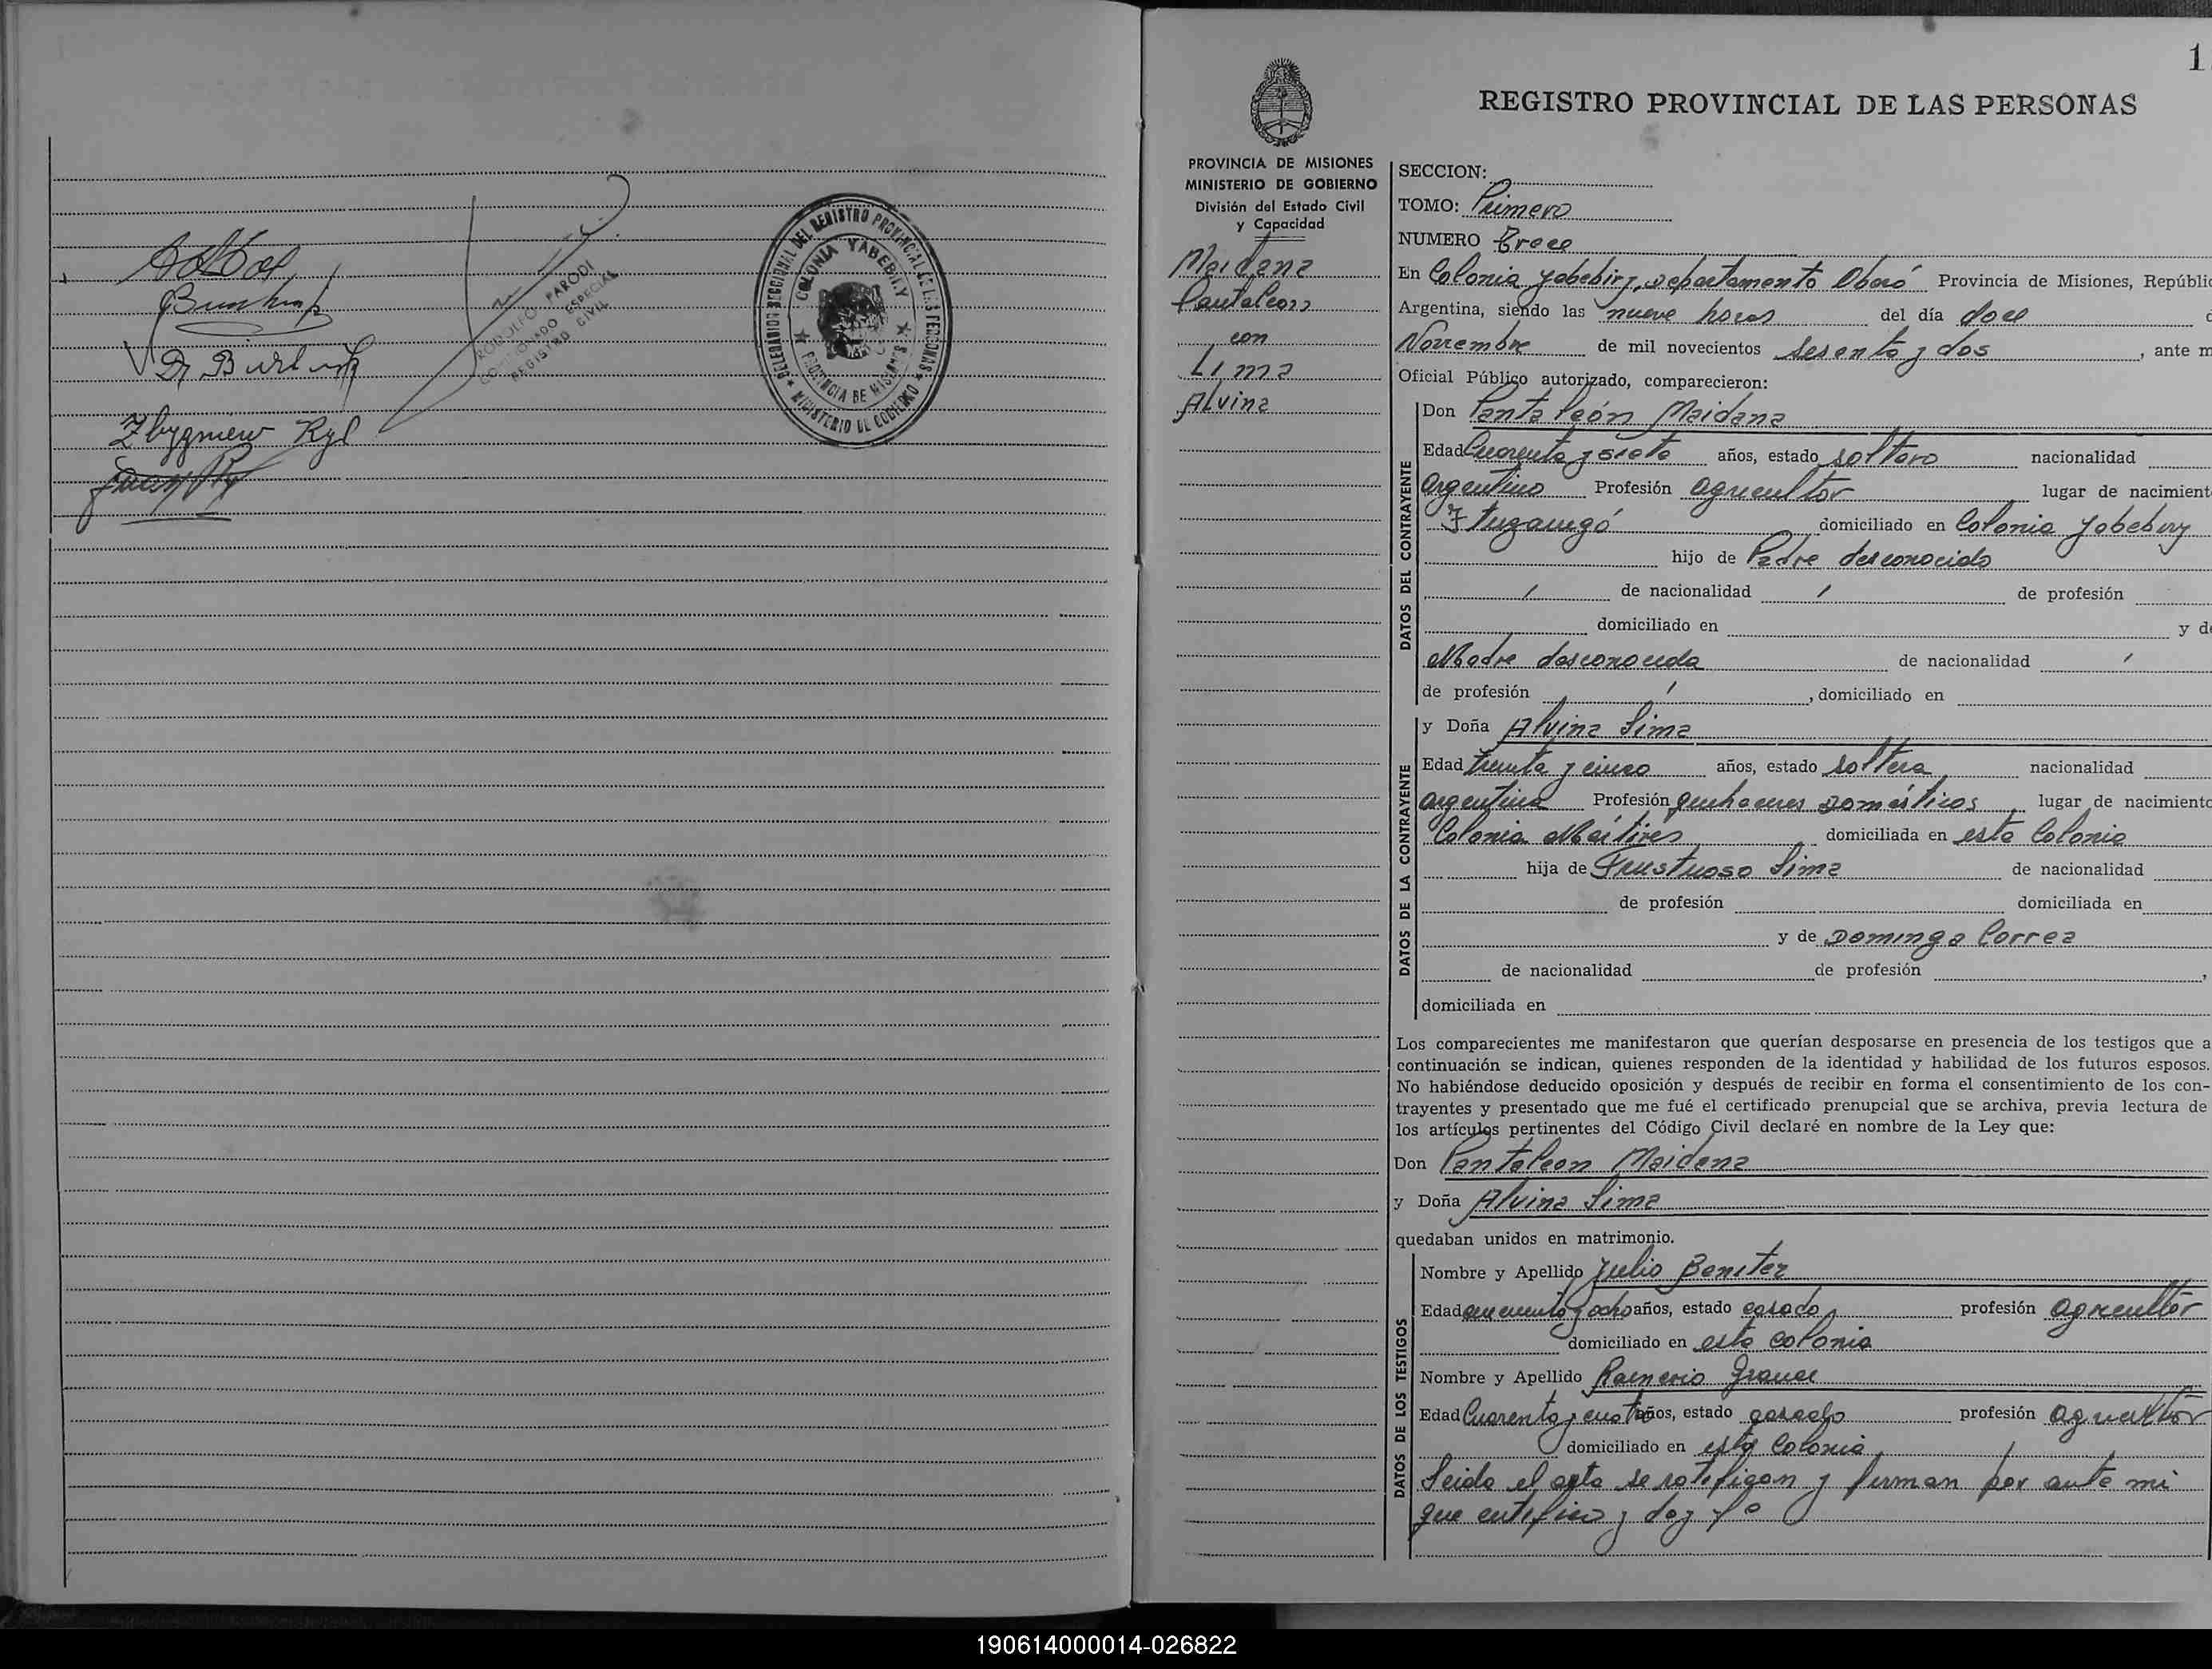 RODOLFO PARODI
COMISIONADO ESPECIAL
REGISTRO CIVIL
DELEGACION SECCIONAL DEL REGISTRO PROVINCIAL DE LAS PERSONAS
MINISTERIO DE GOBIERNO
COLONIA YABEBIRY
PROVINCIA DE MISIONES
Zbygniew Ryl
1
REGISTRO PROVINCIAL DE LAS PERSONAS
PROVINCIA DE MISIONES
MINISTERIO DE GOBIERNO
División del Estado Civil
y Capacidad
Maidana
Pantaleon
con
Lima
Alvina
SECCION:
TOMO: Primero
NUMERO Trece
En Colonia Yabebiry, Departamento Oberá Provincia de Misiones, Repúblic
Argentina, siendo las nueve horas del día doce d
Noviembre de mil novecientos sesenta y dos, ante m
Oficial Público autorizado, comparecieron:
DATOS DEL CONTRAYENTE
Don Pantaleón Maidana
Edad Cuarenta y siete años, estado soltero nacionalidad
argentino Profesión agricultor lugar de nacimient
Ituzaingó domiciliado en Colonia Yabebiry
hijo de Padre desconocido
/ de nacionalidad / de profesión
domiciliado en y de
Madre desconocida de nacionalidad /
de profesión /, domiciliado en
DATOS DE LA CONTRAYENTE
y Doña Alvina Lima
Edad treinta y cinco años, estado soltera nacionalidad
argentina Profesión quehaceres Domésticos lugar de nacimiento
Colonia Mártires domiciliada en esta Colonia
hija de Frustuoso Lima de nacionalidad
de profesión domiciliada en
y de Dominga Correa
de nacionalidad de profesión ,
domiciliada en
Los comparecientes me manifestaron que querían desposarse en presencia de los testigos que a
continuación se indican, quienes responden de la identidad y habilidad de los futuros esposos.
No habiéndose deducido oposición y después de recibir en forma el consentimiento de los con-
trayentes y presentado que me fué el certificado prenupcial que se archiva, previa lectura de
los artículos pertinentes del Código Civil declaré en nombre de la Ley que:
Don Pantaleon Maidana
y Doña Alvina Lima
quedaban unidos en matrimonio.
DATOS DE LOS TESTIGOS
Nombre y Apellido Julio Benitez
Edad cincuenta y ocho años, estado casado profesión agricultor
domiciliado en esta colonia
Nombre y Apellido Ramerio
Edad Cuarenta y cuatro años, estado casado profesión agricultor
domiciliado en esta Colonia
Leida el acta se ratifican y firman por ante mi
que certifico y doy fe
190614000014-026822